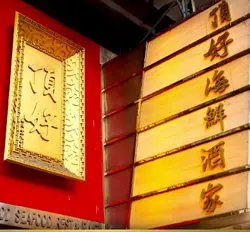 頂好
頂好海鮮酒家
SEAFOOD REST